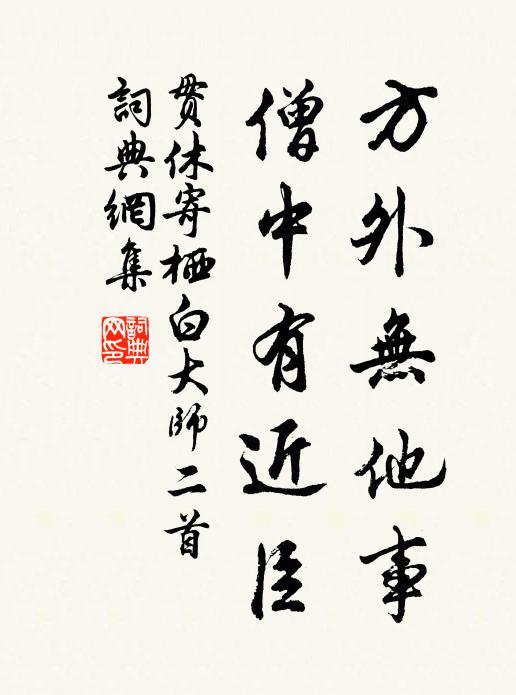 方外無他事
僧中有近臣
貫休寄栖白大師二首
詞典網集
詞典网印